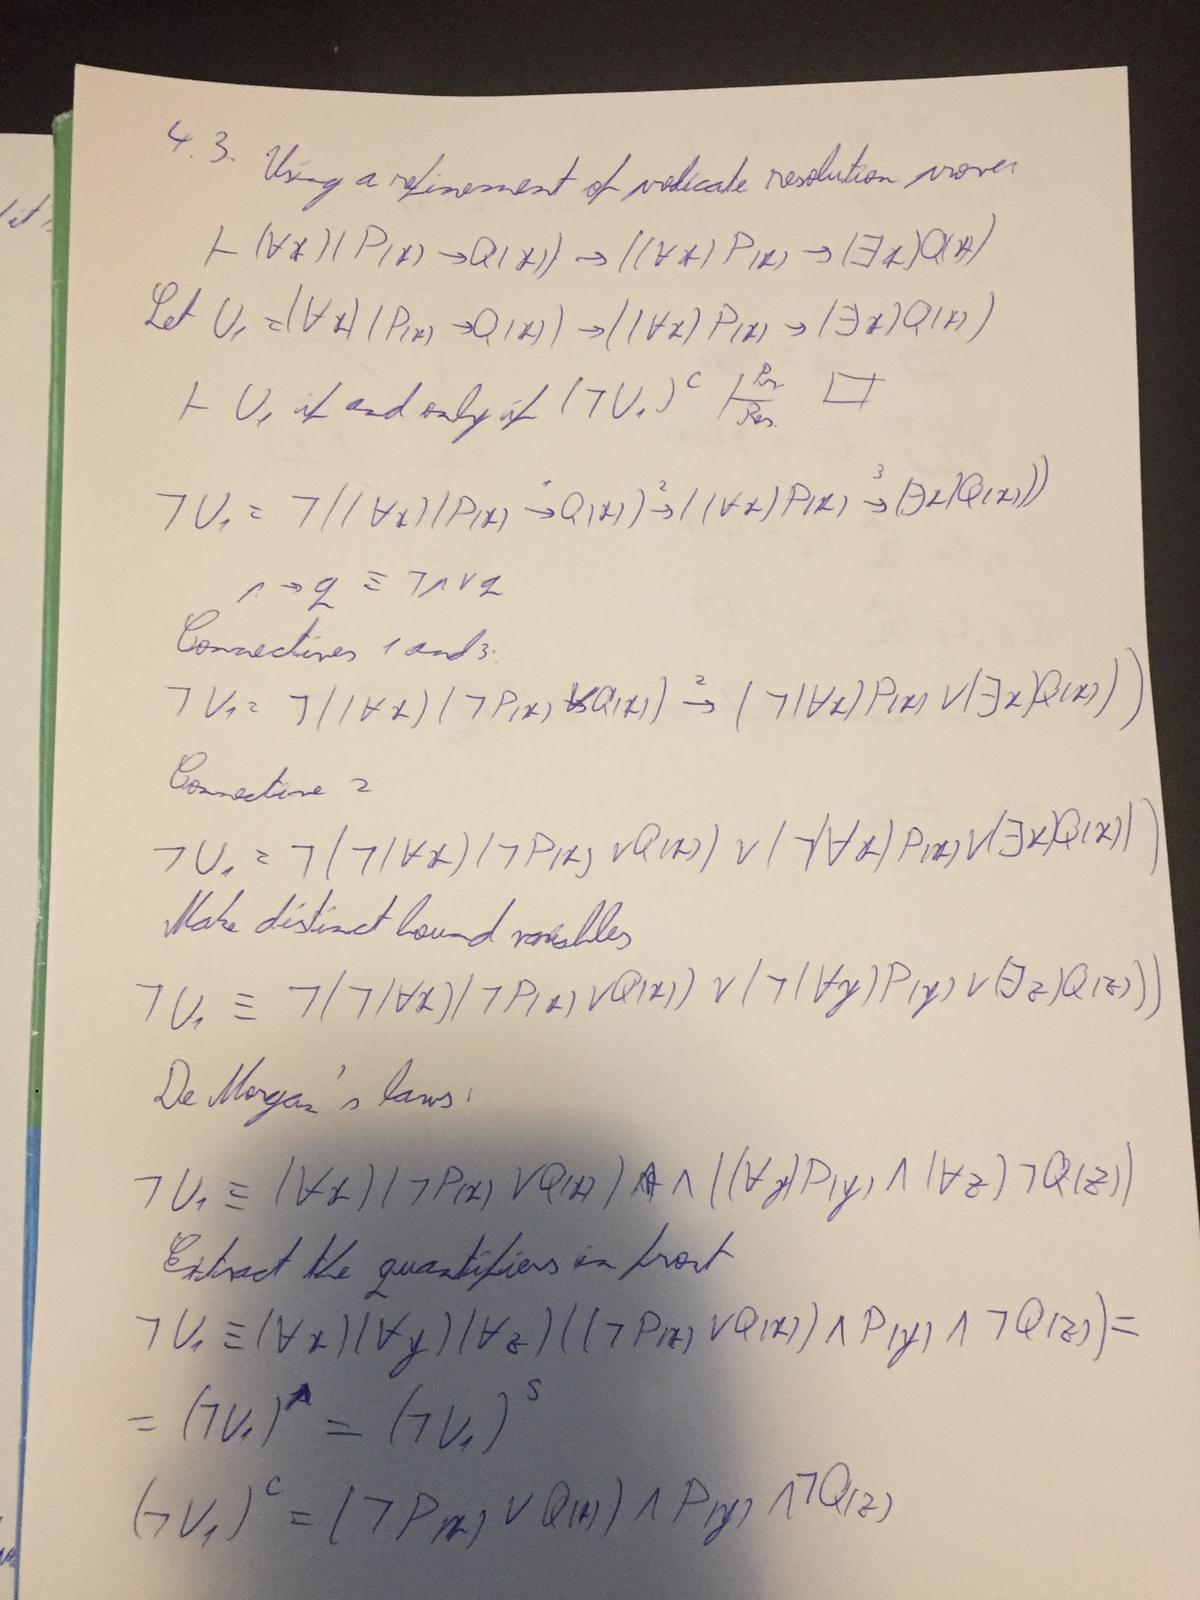 4.3. Using a refinement of predicate resolution prove:
⊢ (∀x)(P(x) → Q(x)) → ((∀x)P(x) → (∃x)Q(x)
Let U₁ = (∀x)(P(x) → Q(x)) → ((∀x)P(x) → (∃x)Q(x))
⊢ U₁ if and only if (¬U₁)ᶜ ⊢ Pr Res □
¬U₁ = ¬((∀x)(P(x) →¹ Q(x)) →² ((∀x)P(x) →³ (∃x)Q(x)))
p → q ≡ ¬p ∨ q
Connectives 1 and 3:
¬U₁ = ¬((∀x)(¬P(x) ∨ Q(x)) →² (¬(∀x)P(x) ∨ (∃x)Q(x)))
Connective 2
¬U₁ = ¬(¬(∀x)(¬P(x) ∨ Q(x)) ∨ (¬(∀x)P(x) ∨ (∃x)Q(x)))
Make distinct bound variables
¬U₁ ≡ ¬(¬(∀x)(¬P(x) ∨ Q(x)) ∨ (¬(∀y)P(y) ∨ (∃z)Q(z)))
De Morgan's laws:
¬U₁ ≡ (∀x)(¬P(x) ∨ Q(x)) ∧ ((∀y)P(y) ∧ (∀z)¬Q(z))
Extract the quantifiers in front
¬U₁ ≡ (∀x)(∀y)(∀z)((¬P(x) ∨ Q(x)) ∧ P(y) ∧ ¬Q(z)) =
= (¬U₁)ᴾ = (¬U₁)ˢ
(¬U₁)ᶜ = (¬P(x) ∨ Q(x)) ∧ P(y) ∧ ¬Q(z)